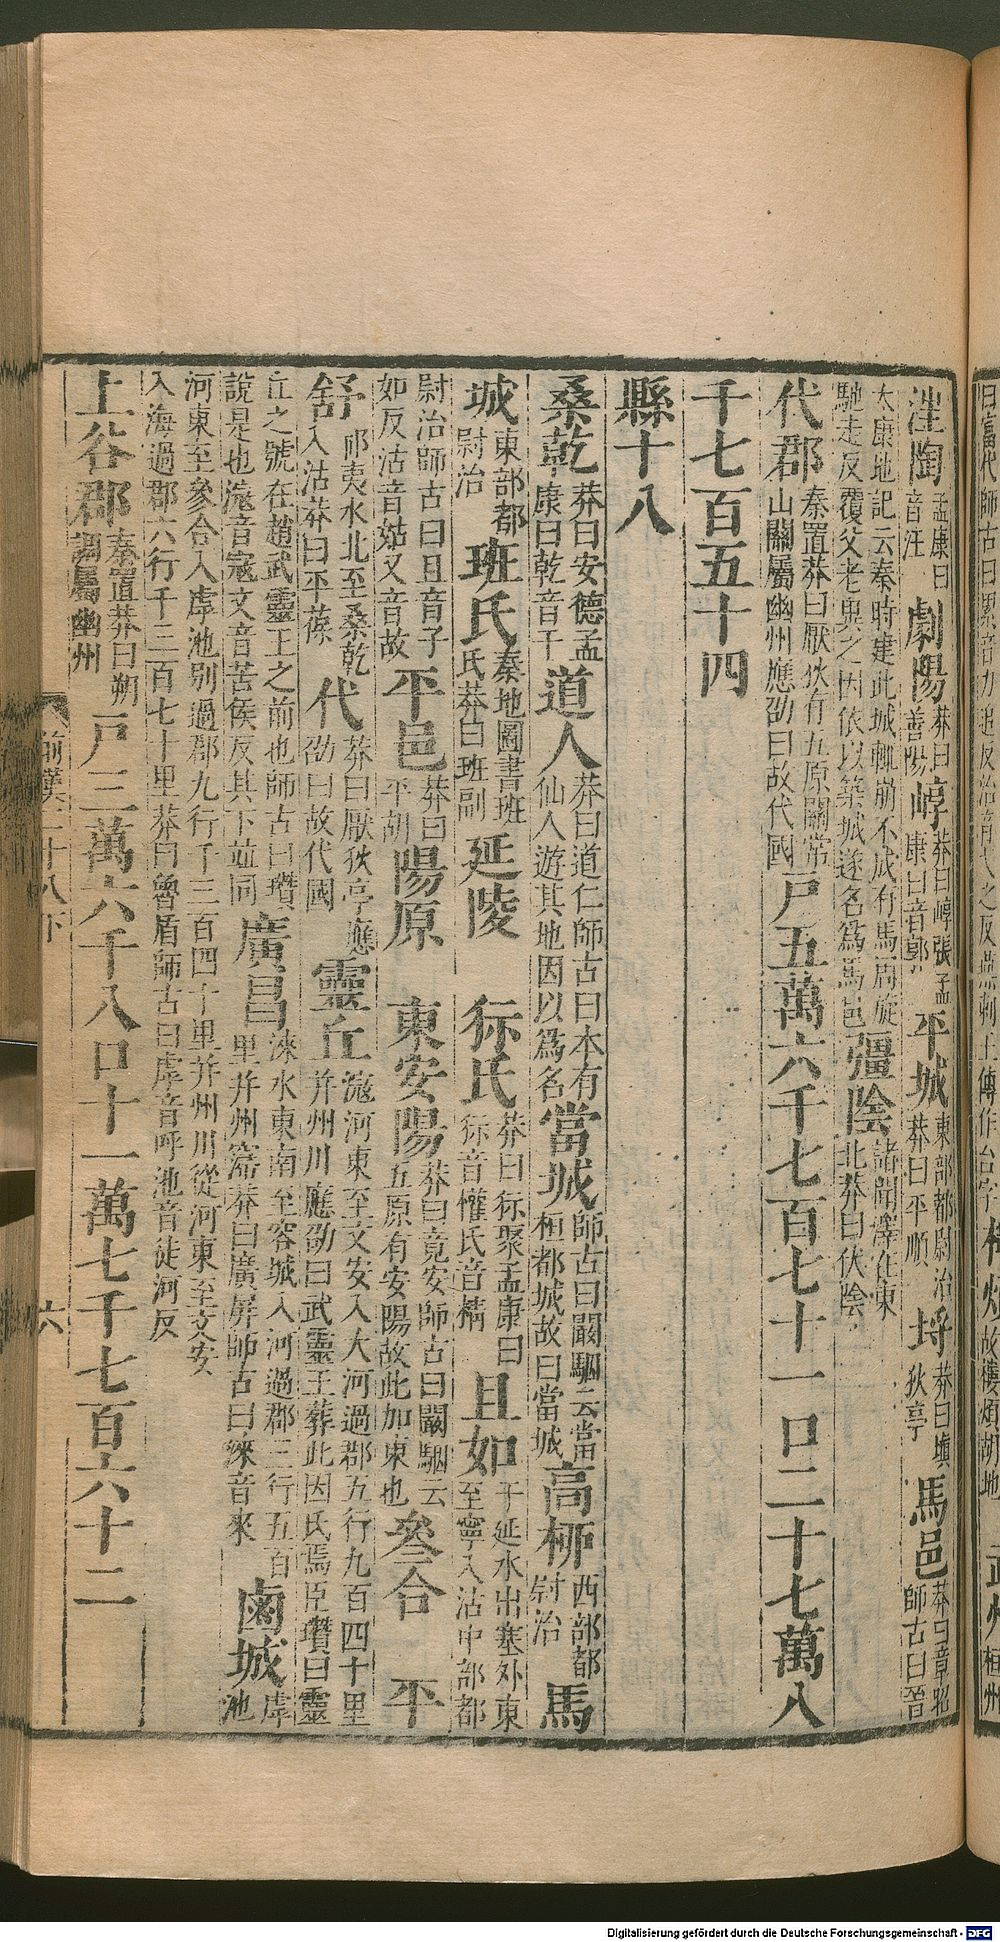 汪陶孟康曰音汪劇陽莽曰善陽崞莽曰崞張孟康曰音郭平城東部都尉治莽曰平順埒莽曰塡狄亭馬邑莽曰章昭師古曰晉
太康地記云秦時建此城輒崩不成有馬周旋馳走反覆父老異之因依以築城遂名爲馬邑彊陰諸聞澤在東北莽曰伏陰
代郡秦置莽曰厭狄有五原關常山關屬幽州應劭曰故代國戸五萬六千七百七十一口二十七萬八
千七百五十四
縣十八
桑乾莽曰安德孟康曰乾音干道人莽曰道仁師古曰本有仙人遊其地因以爲名當城師古曰闞駰云當桓都城故曰當城高柳西部都尉治馬
城東部都尉治班氏秦地圖書班氏莽曰班副延陵 狋氏莽曰狋聚孟康曰狋音懽氏音精且如于延水出塞外東至寧入沽中部都
尉治師古曰且音子如反沽音姑又音故平邑莽曰平胡陽原 東安陽莽曰竟安師古曰闞駰云五原有安陽故此加東也叅合 平
舒祁夷水北至桑乾入沽莽曰平葆代莽曰厭狄亭應劭曰故代國靈丘滱河東至文安入大河過郡五行九百四十里并州川應劭曰武靈王葬此因氏焉臣瓚曰靈
丘之號在趙武靈王之前也師古曰瓚說是也滱音寇又音苦侯反其下竝同廣昌淶水東南至容城入河過郡三行五百里并州䆮莽曰廣屏師古曰淶音來鹵城虖池
河東至參合入虖池别過郡九行千三百四十里并州川從河東至文安入海過郡六行千三百七十里莽曰魯盾師古曰虖音呼池音徒河反
上谷郡秦置莽曰朔調屬幽州戸三萬六千八口十一萬七千七百六十二
前漢二十八下
六
Digitalisierung gefördert durch die Deutsche Forschungsgemeinschaft - DFG